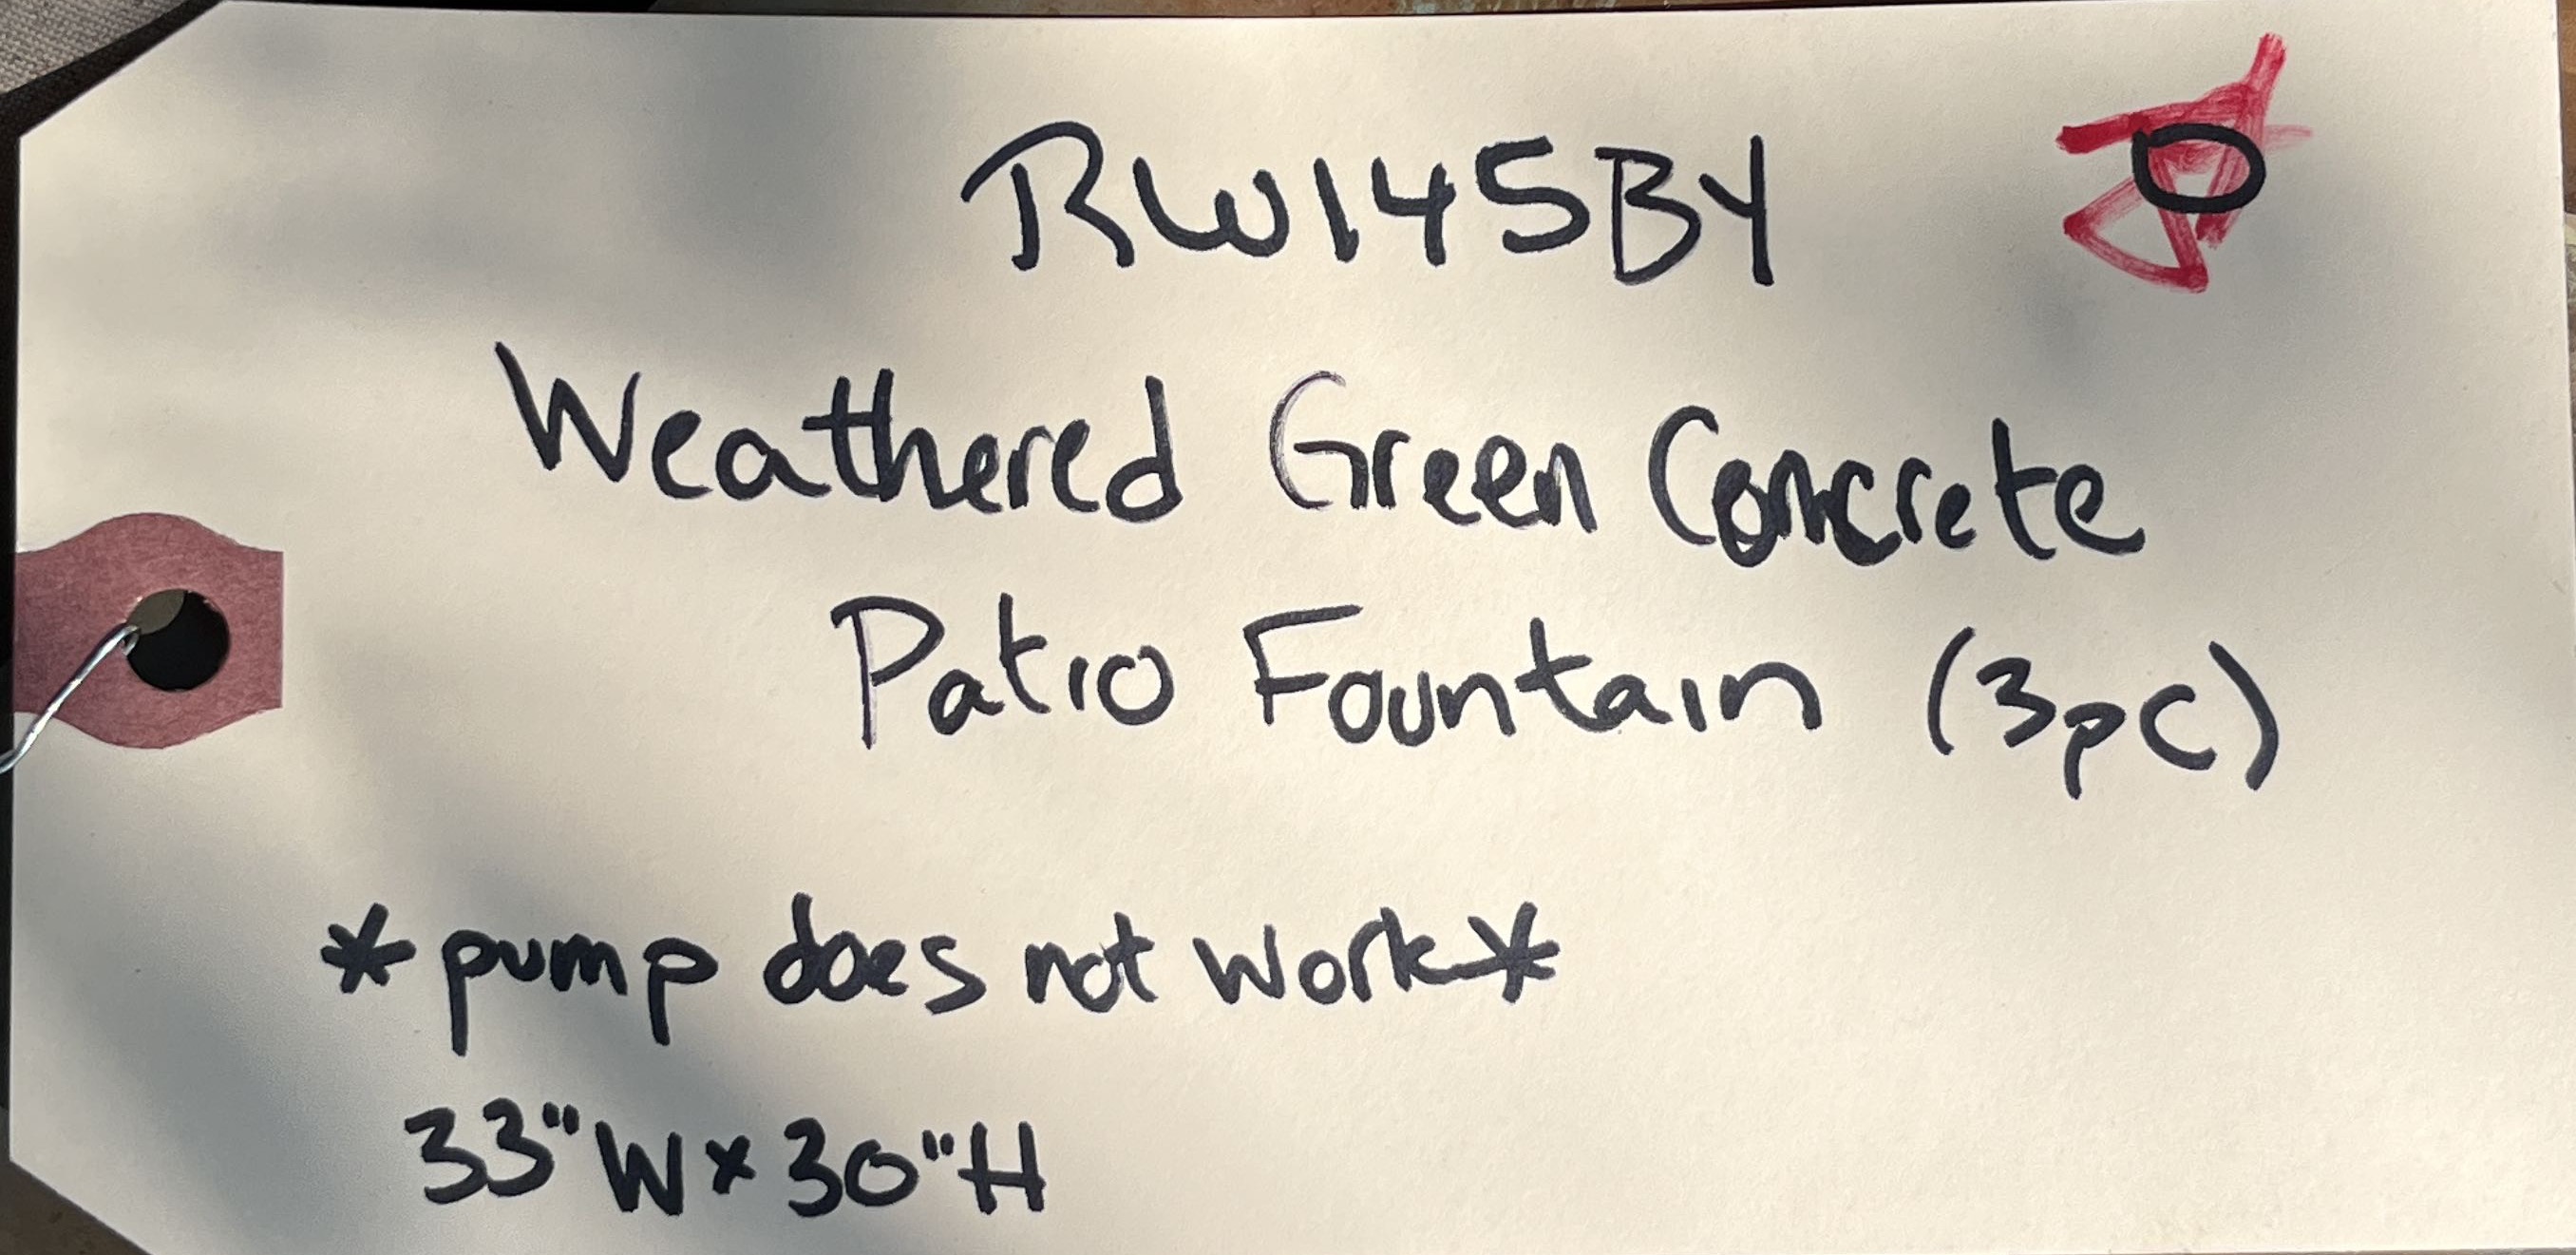 RW145BY
Weathered Green Concrete
Patio Fountain (3pc)
*pump does not work*
33"W x 30"H